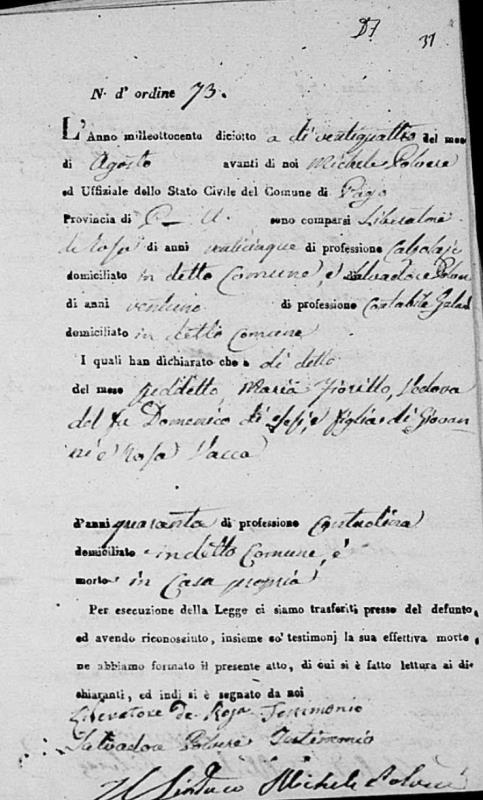 37
31
N. d' ordine 73.
L'Anno milleottocento diciotto a di ventiquattro del mese
di Agosto avanti di noi Michele Polvere
ed Uffiziale dello Stato Civile del Comune di Pago
Provincia di P. U. sono comparsi Liberatore
de Rosa di anni venticinque di professione
domiciliato in detto Comune, e Salvadore Polvere
di anni ventuno di professione Contabile
domiciliato in detto Comune
I quali han dichiarato che a di detto
del mese sùddetto, Maria Fiorillo, Vedova
del fu Domenico di e figlia di Giovan
ni e Rosa Vacca
d'anni quaranta di professione Contadina
domiciliato in detto Comune, è
morto in Casa propria
Per esecuzione della Legge ci siamo trasferiti presso del defunto,
ed avendo riconosciuto, insieme co' testimonj la sua effettiva morte
ne abbiamo formato il presente atto, di cui si è fatto lettura ai di-
chiaranti, ed indi si è segnato da noi
Liberatore de Rosa Testimonio
Salvadore Polvere Testimonio
Il Sindaco Michele Polvere